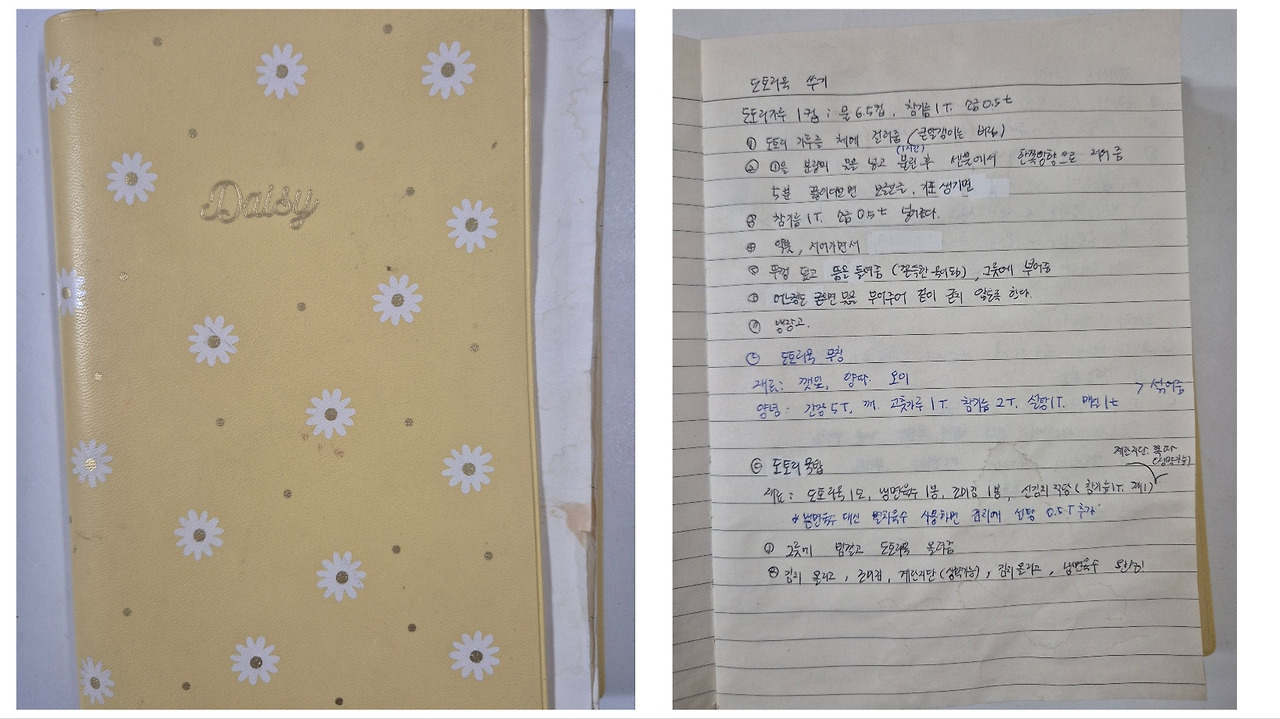 Daisy
도토리묵 쑤기
도토리가루 1컵 : 물 6.5컵, 참기름 1T. 소금 0.5t
① 도토리 가루를 체에 걸러줌 (큰알갱이는 버림)
(1시간)
② ①을 분량의 물을 넣고 불린 후 센불에서 한쪽방향으로 저어줌
5분 끓이다보면 기포 생기면
③ 참기름 1T. 소금 0.5t 넣어준다.
④ 약불, 저어가면서
⑤ 뚜껑 덮고 뜸을 들여줌, 그릇에 부어줌
굳으면 물을 부어주어 겉이 굳지 않도록 한다.
냉장고.
도토리묵 무침
재료: 깻잎, 양파. 오이
양념: 간장 5T, 깨. 고춧가루 1T. 참기름 2T. 설탕 1T. 매실 1t > 섞어줌
계란지단 쪽파
(생략가능)
도토리묵밥
재료: 도토리묵 1모, 냉면육수 1봉, 조미김 1봉, 신김치 적당 (참기름 1T.
* 냉면육수 대신 멸치육수 사용하면 김치에 설탕 0.5T 추가
① 그릇에 밥깔고 도토리묵 올려줌
② 김치 올리고, 조미김, 계란지단 (생략가능), 김치올리고, 냉면육수 완성!